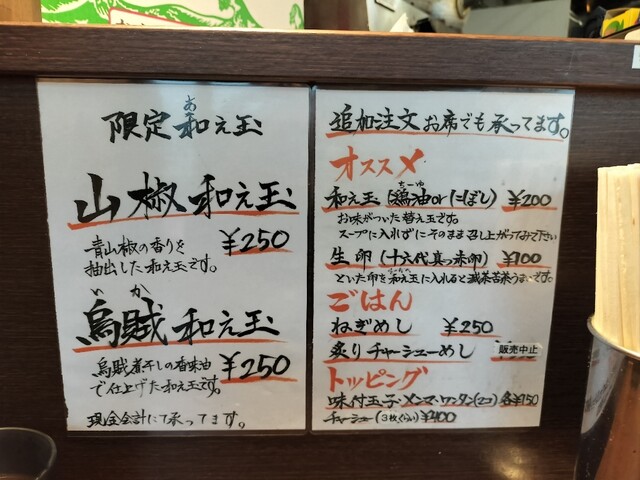 限定和え玉
あ
山椒和え玉
¥250
青山椒の香りを
抽出した和え玉です。
いか
烏賊和え玉
¥250
烏賊煮干しの香味油
で仕上げた和え玉です。
現金会計にて承ってます。
追加注文お席でも承ってます。
オススメ
和え玉(鶏油orにぼし) ¥200
ちーゆ
お味がついた替え玉です。
スープに入れずにそのまま召し上がってみて下さい
生卵(十六代真っ赤卵) ¥100
といた卵を和え玉に入れると滅茶苦茶うまいです。
ごはん
ねぎめし ¥250
炙りチャーシューめし 販売中止
トッピング
味付玉子・メンマ・ワンタン(2コ) 各¥150
チャーシュー(3枚ぐらい) ¥400